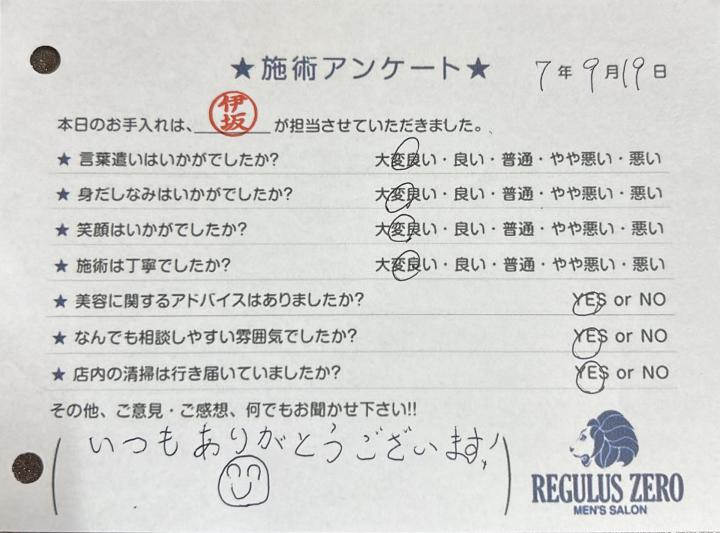 ★施術アンケート★ 7年9月19日
本日のお手入れは、伊坂が担当させていただきました。
★ 言葉遣いはいかがでしたか? 大変良い・良い・普通・やや悪い・悪い
★ 身だしなみはいかがでしたか? 大変良い・良い・普通・やや悪い・悪い
★ 笑顔はいかがでしたか? 大変良い・良い・普通・やや悪い・悪い
★ 施術は丁寧でしたか? 大変良い・良い・普通・やや悪い・悪い
★ 美容に関するアドバイスはありましたか? YES or NO
★ なんでも相談しやすい雰囲気でしたか? YES or NO
★ 店内の清掃は行き届いていましたか? YES or NO
その他、ご意見・ご感想、何でもお聞かせ下さい!!
いつもありがとうございます!
REGULUS ZERO
MEN'S SALON